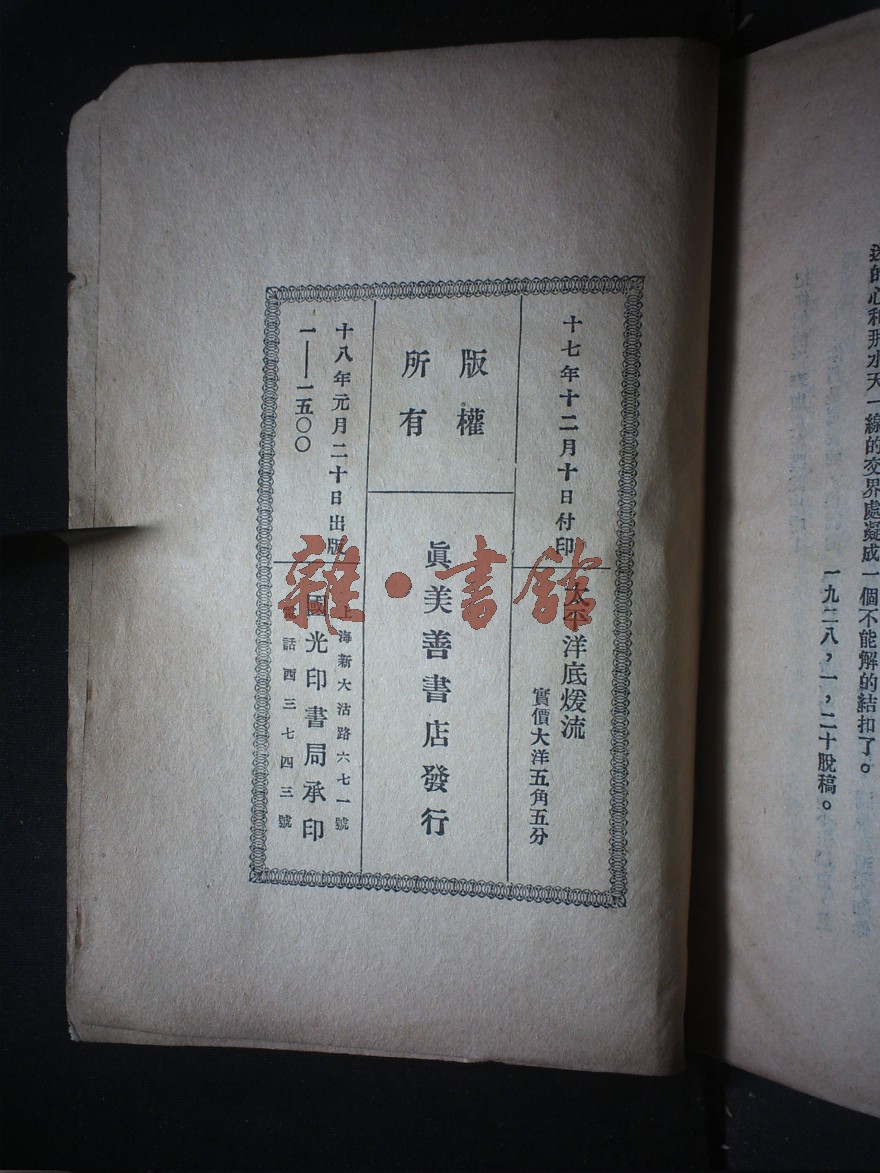 迷的心和那水天一線的交界處凝成一個不能解的結扣了。
一九二八，一，二十脫稿。
十七年十二月十日付印
太平洋底煖流
實價大洋五角五分
版權
所有
眞美善書店發行
十八年元月二十日出版
一——一五〇〇
上海新大沽路六七一號
國光印書局承印
電話西三七四三號
雜·書館